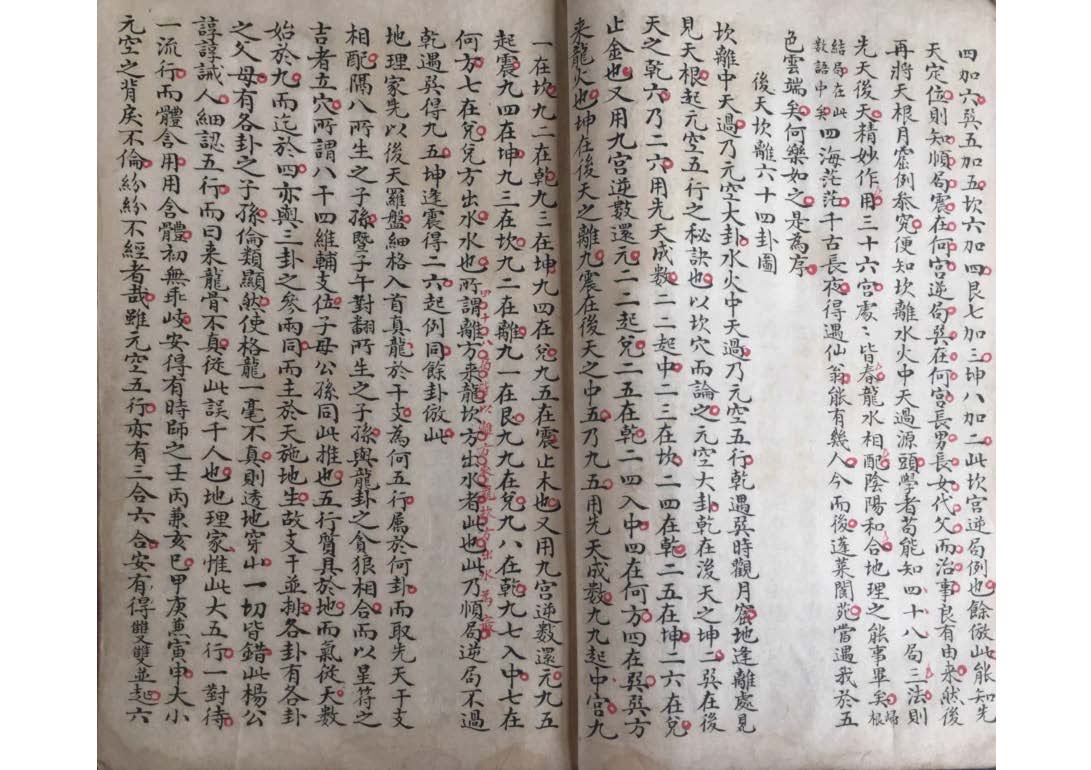 四加六巽五加五坎六加四艮七加三坤八加二此坎宫逆局例也餘倣此能知先
天定位則知順局震在何宫逆局巽在何宫長男長女代父而治事良有由来然後
再將天根月窟例叅究便知坎離水火中天過源頭學者苟能知四十八局三法則
先天後天精妙作用三十六宫處〻皆春龍水相配陰陽和合地理之能事畢矣歸根
結局在此數語中矣四海茫茫千古長夜得遇仙翁能有幾人今而後蓬莱閬苑當遇我於五
色雲端矣何樂如之是為序
後天坎離六十四卦圖
坎離中天過乃元空大卦水火中天過乃元空五行乾遇巽時觀月窟地逢離處見
見天根起元空五行之秘訣也以坎穴而論之元空大卦乾在後天之坤二巽在後
天之乾六乃二六用先天成數二二起中二三在坎二四在乾二五在坤二六在兌
止金也又用九宫逆數還元二二起兌二五在乾二四入中四在何方四在巽巽方
来龍火也坤在後天之離九震在後天之中五乃九五用先天成數九九起中宫九
一在坎九二在乾九三在坤九四在兌九五在震止木也又用九宫逆数還元九五
起震九四在坤九三在坎九二在離九一在艮九九在兌九八在乾九七入中七在
何方七在兌兌方出水水也所謂離方来龍坎方出水者此也此乃順局逆局不過
乾遇巽得九五坤逢震得二六起例同餘卦倣此
地理家先以後天羅盤細格入首真龍於干支為何五行屬於何卦而取先天干支
相配隔八所生之子孫暨子午對翻所生之子孫與龍卦之貪狼相合而以星符之
吉者立穴所謂八干四維輔支位子母公孫同此推也五行質具於地而氣從天數
始於九而迄於四亦與三卦之參兩同而主於天施地生故支干並排各卦有各卦
之父母有各卦之子孫倫類顯然使格龍一毫不真則透地穿山一切皆錯此楊公
諄諄誡人細認五行而曰来龍骨不真從此誤千人也地理家惟此大五行一對待
一流行而體含用用含體初無乖岐安得有時師之壬丙兼亥巳甲庚兼寅申大小
元空之背戾不倫紛紛不經者哉雖元空五行亦有三合六合安有得雙雙並起六